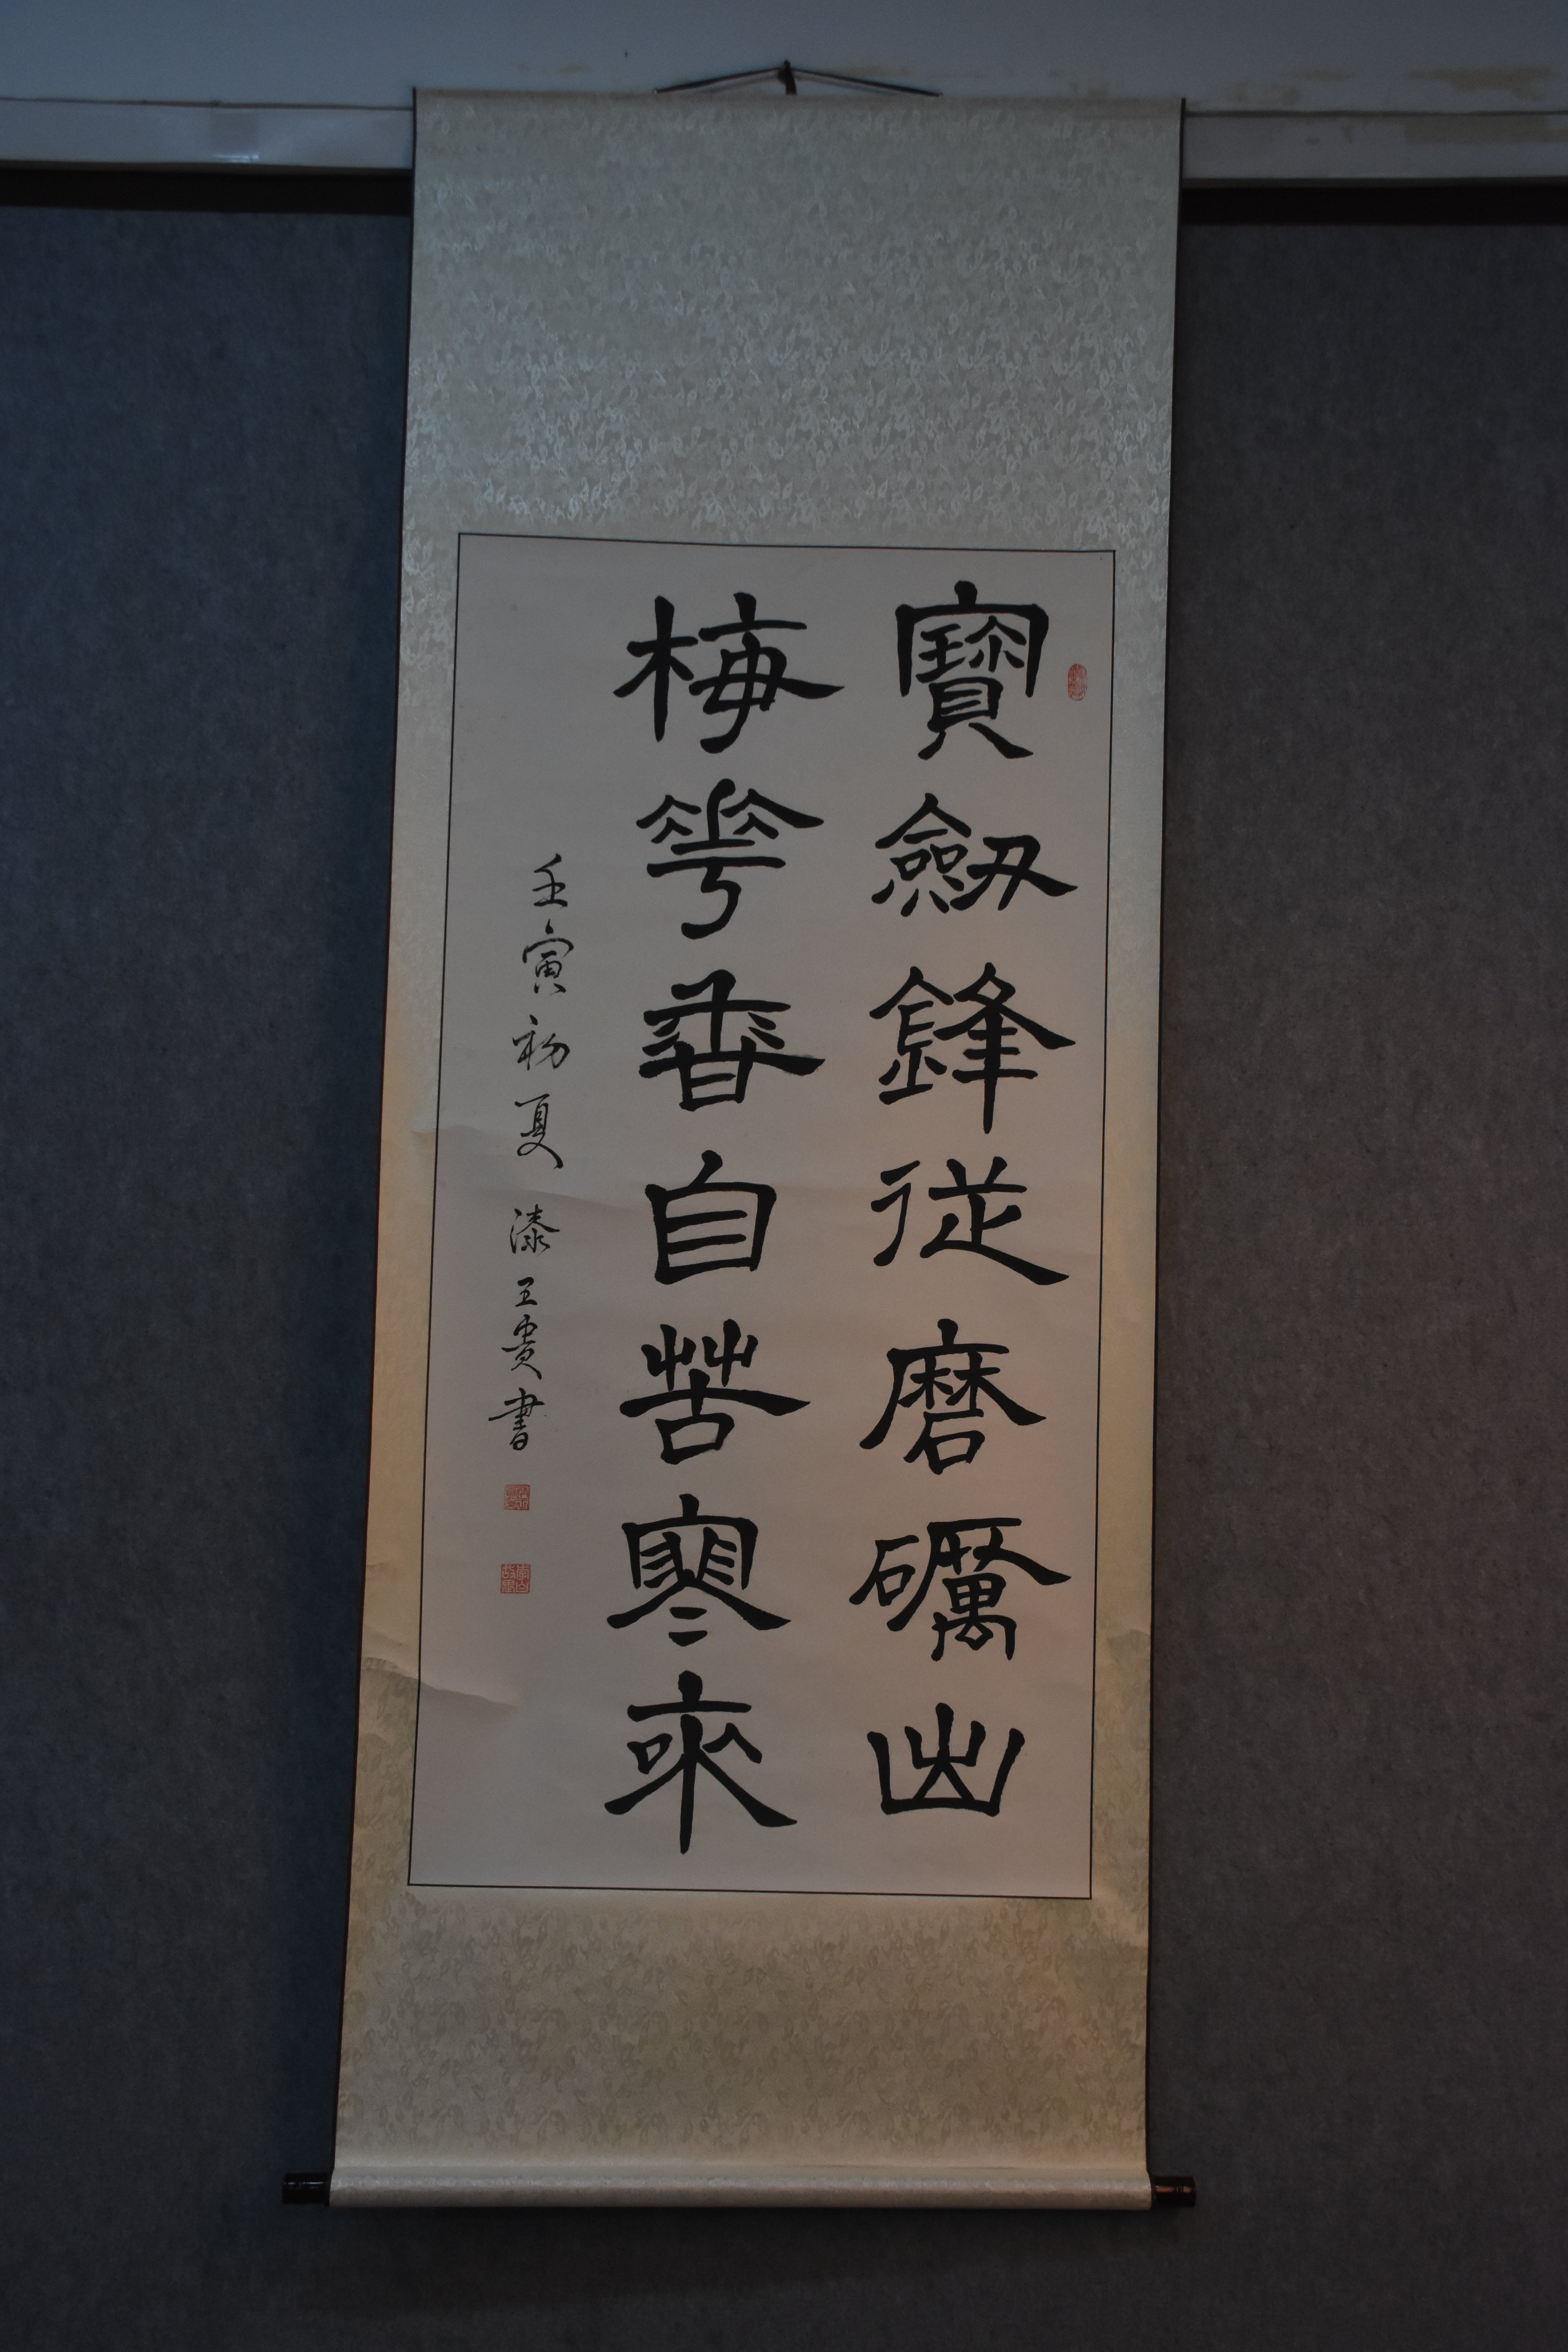 寶劔鋒從磨礪出
梅花香自苦寒來
壬寅初夏 漆王贵書